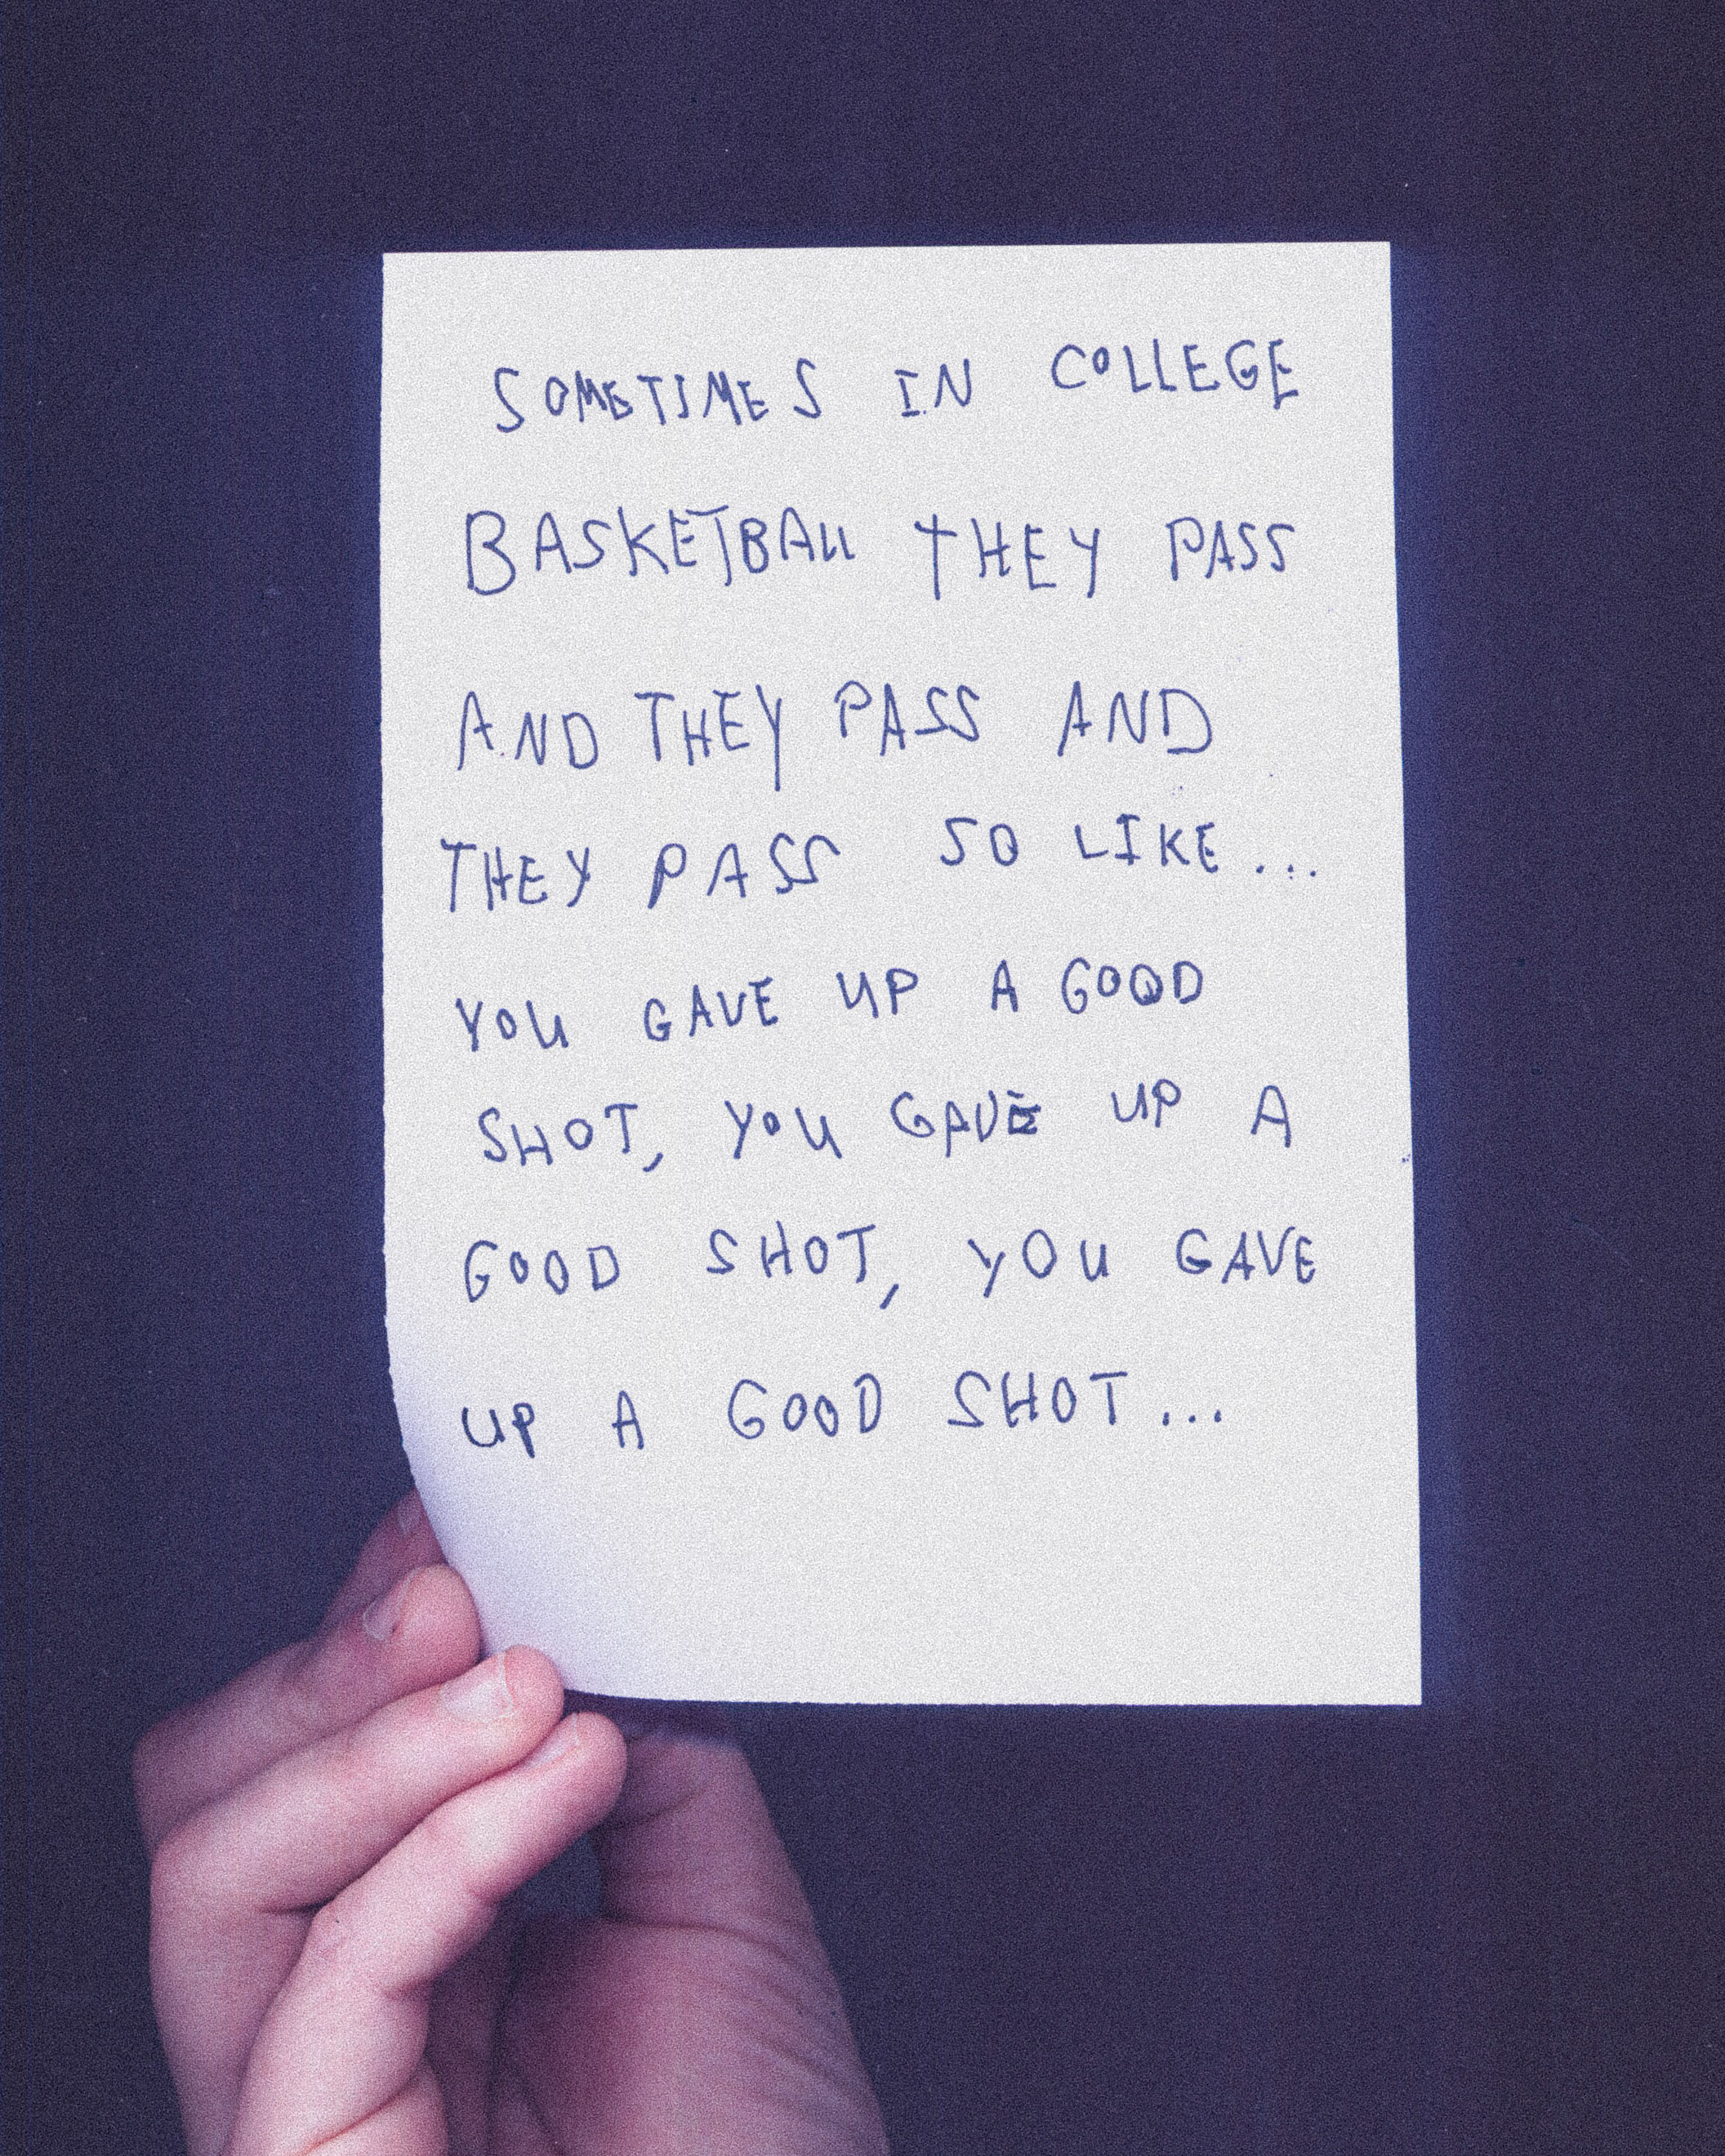 SOMETIMES IN COLLEGE
BASKETBALL THEY PASS
AND THEY PASS AND
THEY PASS SO LIKE...
YOU GAVE UP A GOOD
SHOT, YOU GAVE UP A
GOOD SHOT, YOU GAVE
UP A GOOD SHOT...